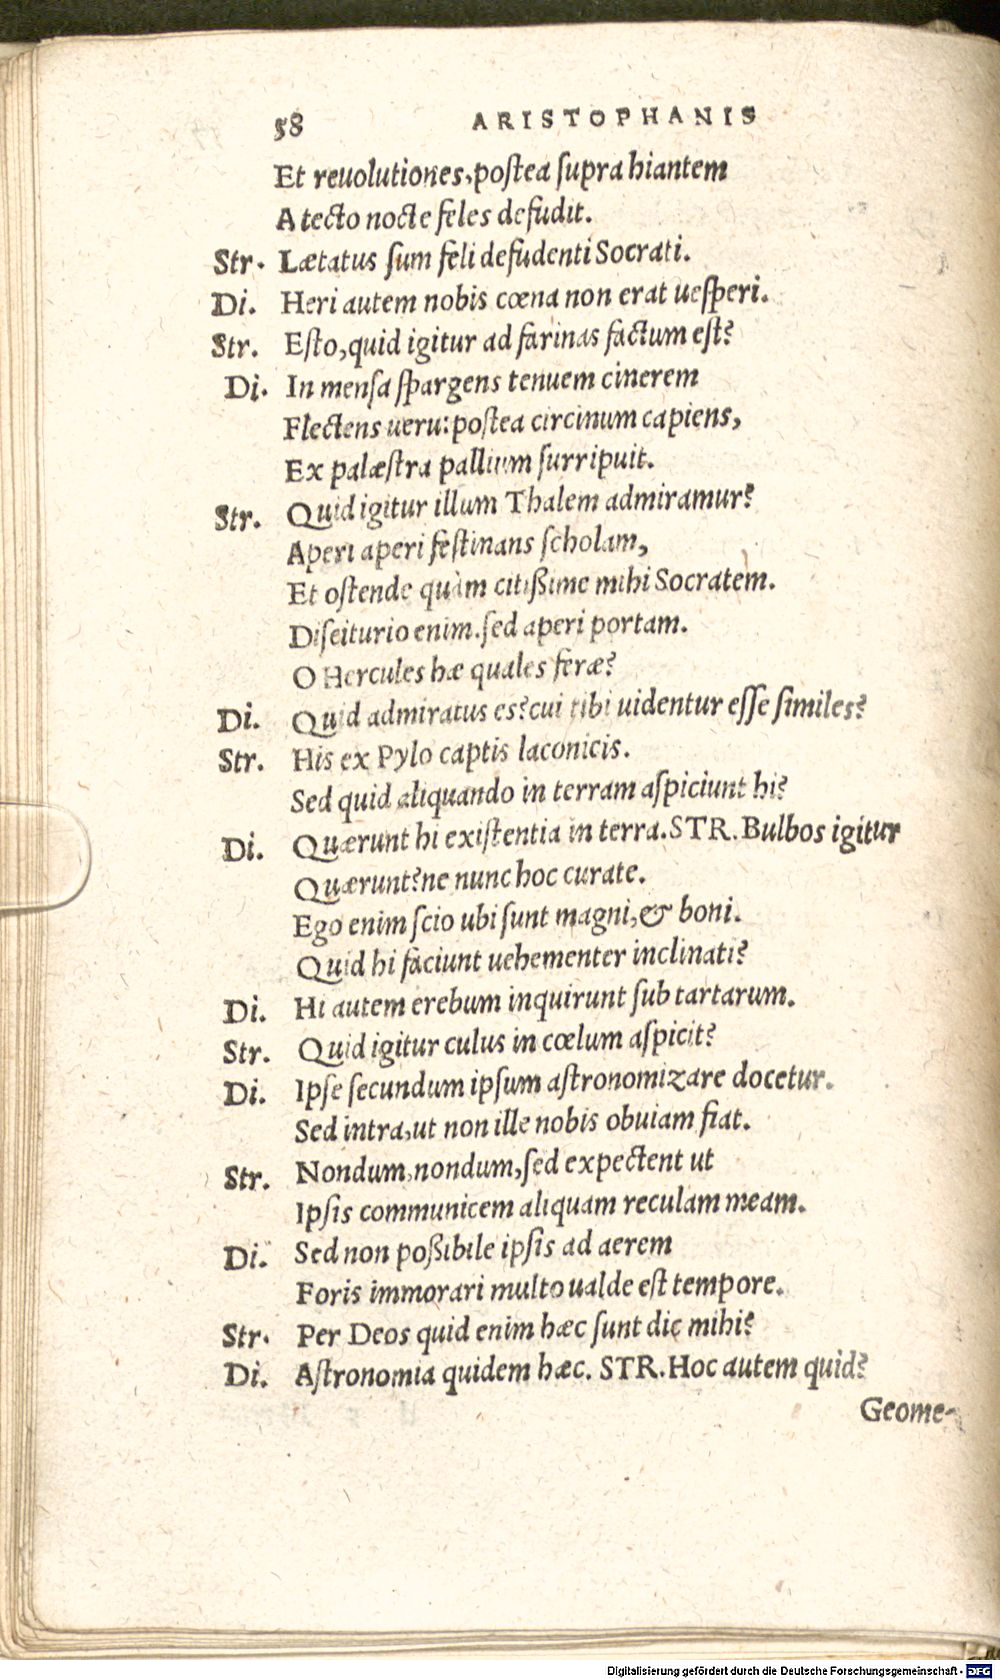 58 ARISTOPHANIS
Et reuolutiones, postea supra hiantem
A tecto nocte feles defudit.
Str. Lætatus sum feli defudenti Socrati.
Di. Heri autem nobis cœna non erat uesperi.
Str. Esto, quid igitur ad farinas factum est?
Di. In mensa spargens tenuem cinerem
Flectens ueru: postea circinum capiens,
Ex palæstra pallium surripuit.
Str. Quid igitur illum Thalem admiramur?
Aperi aperi festinans scholam,
Et ostende quàm citißime mihi Socratem.
Disciturio enim. sed aperi portam.
O Hercules hæ quales feræ?
Di. Quid admiratus es? cui tibi uidentur esse similes?
Str. His ex Pylo captis laconicis.
Sed quid aliquando in terram aspiciunt hi?
Di. Quærunt hi existentia in terra. STR. Bulbos igitur
Quærunt? ne nunc hoc curate.
Ego enim scio ubi sunt magni, & boni.
Quid hi faciunt uehementer inclinati?
Di. Hi autem erebum inquirunt sub tartarum.
Str. Quid igitur culus in cœlum aspicit?
Di. Ipse secundum ipsum astronomizare docetur.
Sed intra, ut non ille nobis obuiam fiat.
Str. Nondum, nondum, sed expectent ut
Ipsis communicem aliquam reculam meam.
Di. Sed non poßibile ipsis ad aerem
Foris immorari multo ualde est tempore.
Str. Per Deos quid enim hæc sunt dic mihi?
Di. Astronomia quidem hæc. STR. Hoc autem quid?
Geome-
Digitalisierung gefördert durch die Deutsche Forschungsgemeinschaft - DFG